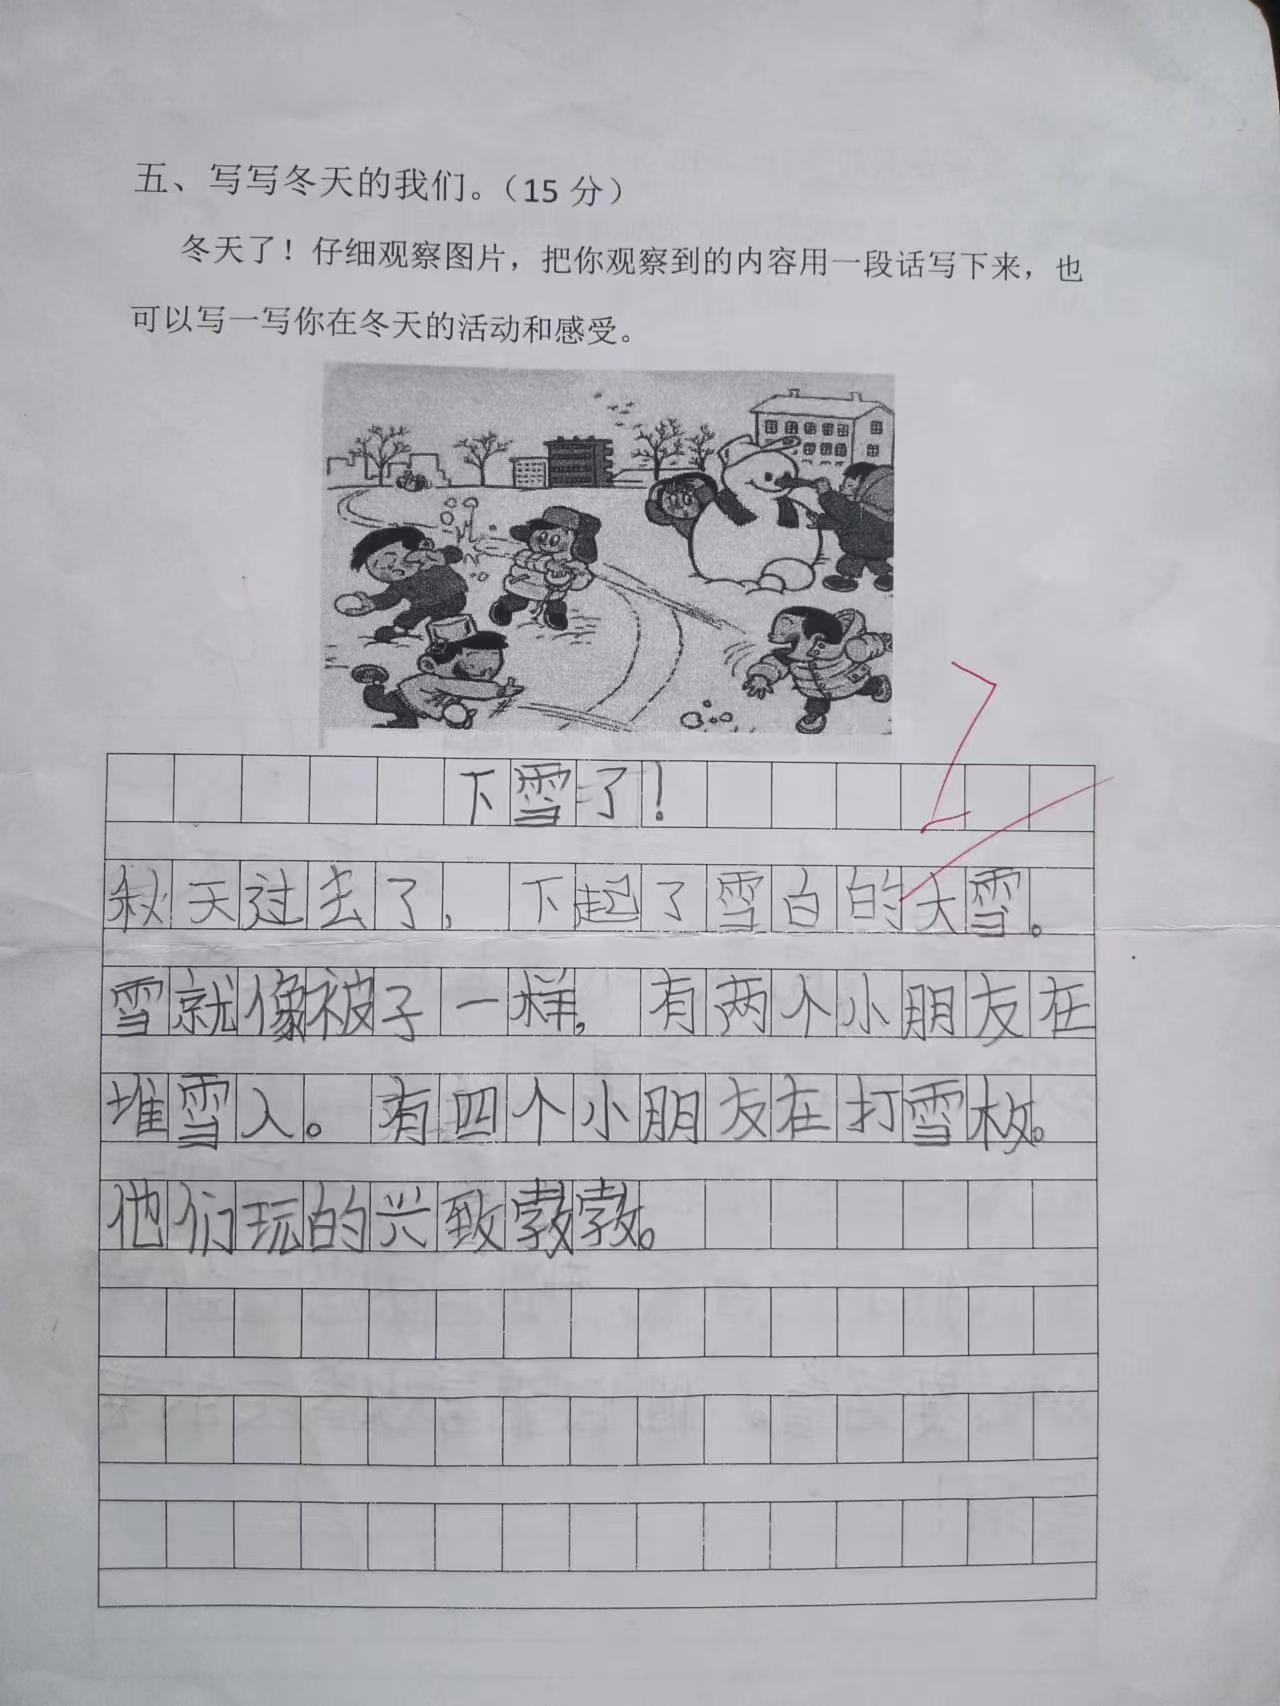 五、写写冬天的我们。（15 分）
冬天了！仔细观察图片，把你观察到的内容用一段话写下来，也
可以写一写你在冬天的活动和感受。
下雪了！
秋天过去了，下起了雪白的大雪。
雪就像被子一样，有两个小朋友在
堆雪人。有四个小朋友在打雪枚。
他们玩的兴致勃勃。